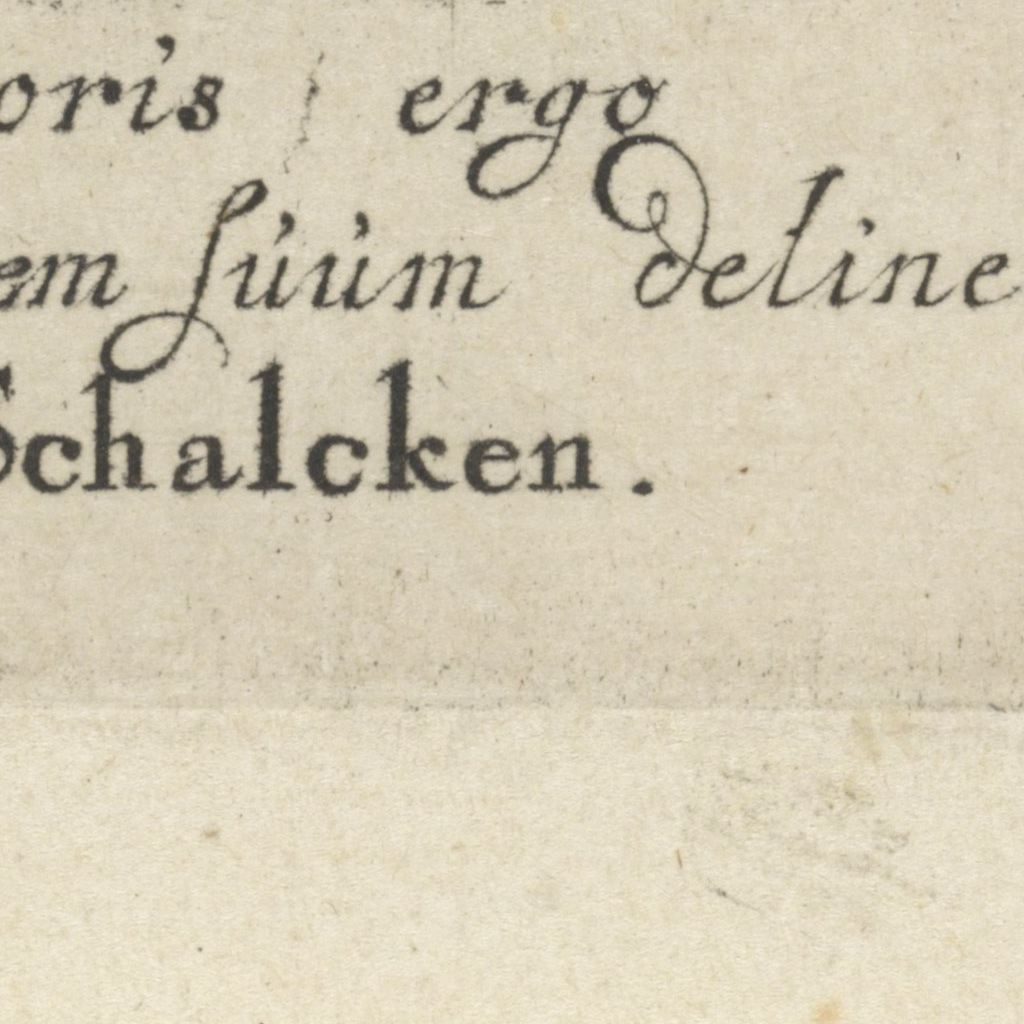 oris ergo
em suum deline
Schalcken.